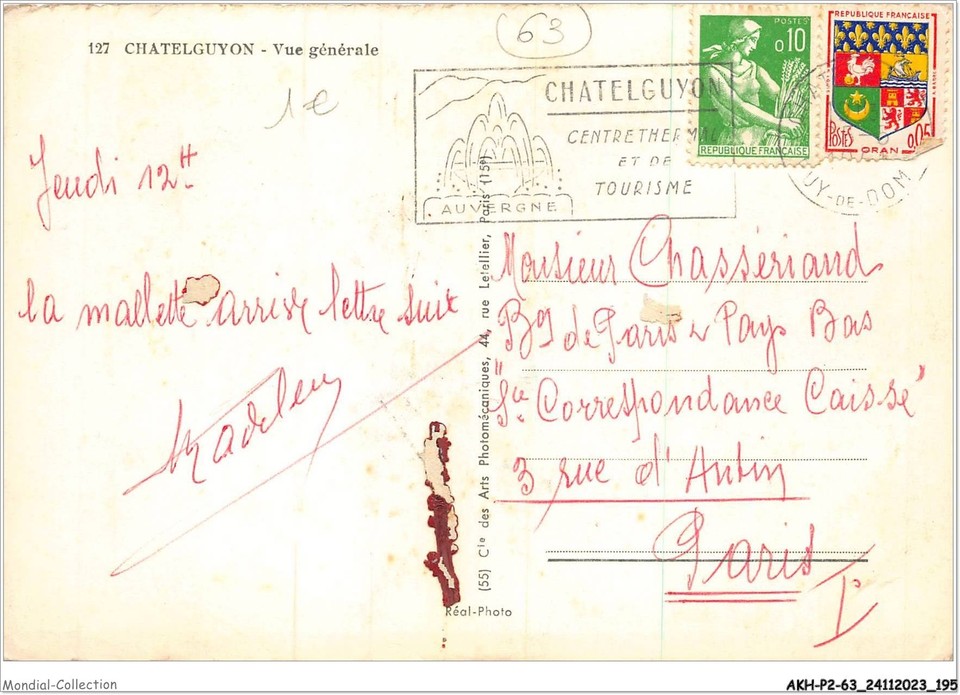 127 CHATELGUYON - Vue générale
63
1€
Jeudi 12H
la mallette arrive lettre suit
Madelen
CHATELGUYON
CENTRE THERMAL
ET DE
TOURISME
AUVERGNE
POSTES
0,10
REPUBLIQUE FRANÇAISE
REPUBLIQUE FRANÇAISE
POSTES
0,05
ORAN
PUY-DE-DOM
Monsieur Chassériaud
Bq de Paris & Pays Bas
"Sce Correspondance Caisse"
3 rue d'Antin
Paris
Ie
(55) Cie des Arts Photomécaniques, 44, rue Letellier, Paris (15e)
Réal-Photo
Mondial-Collection
AKH-P2-63_24112023_195